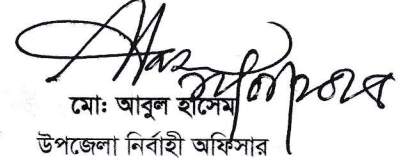 মো: আবুল হাসেম
উপজেলা নির্বাহী অফিসার